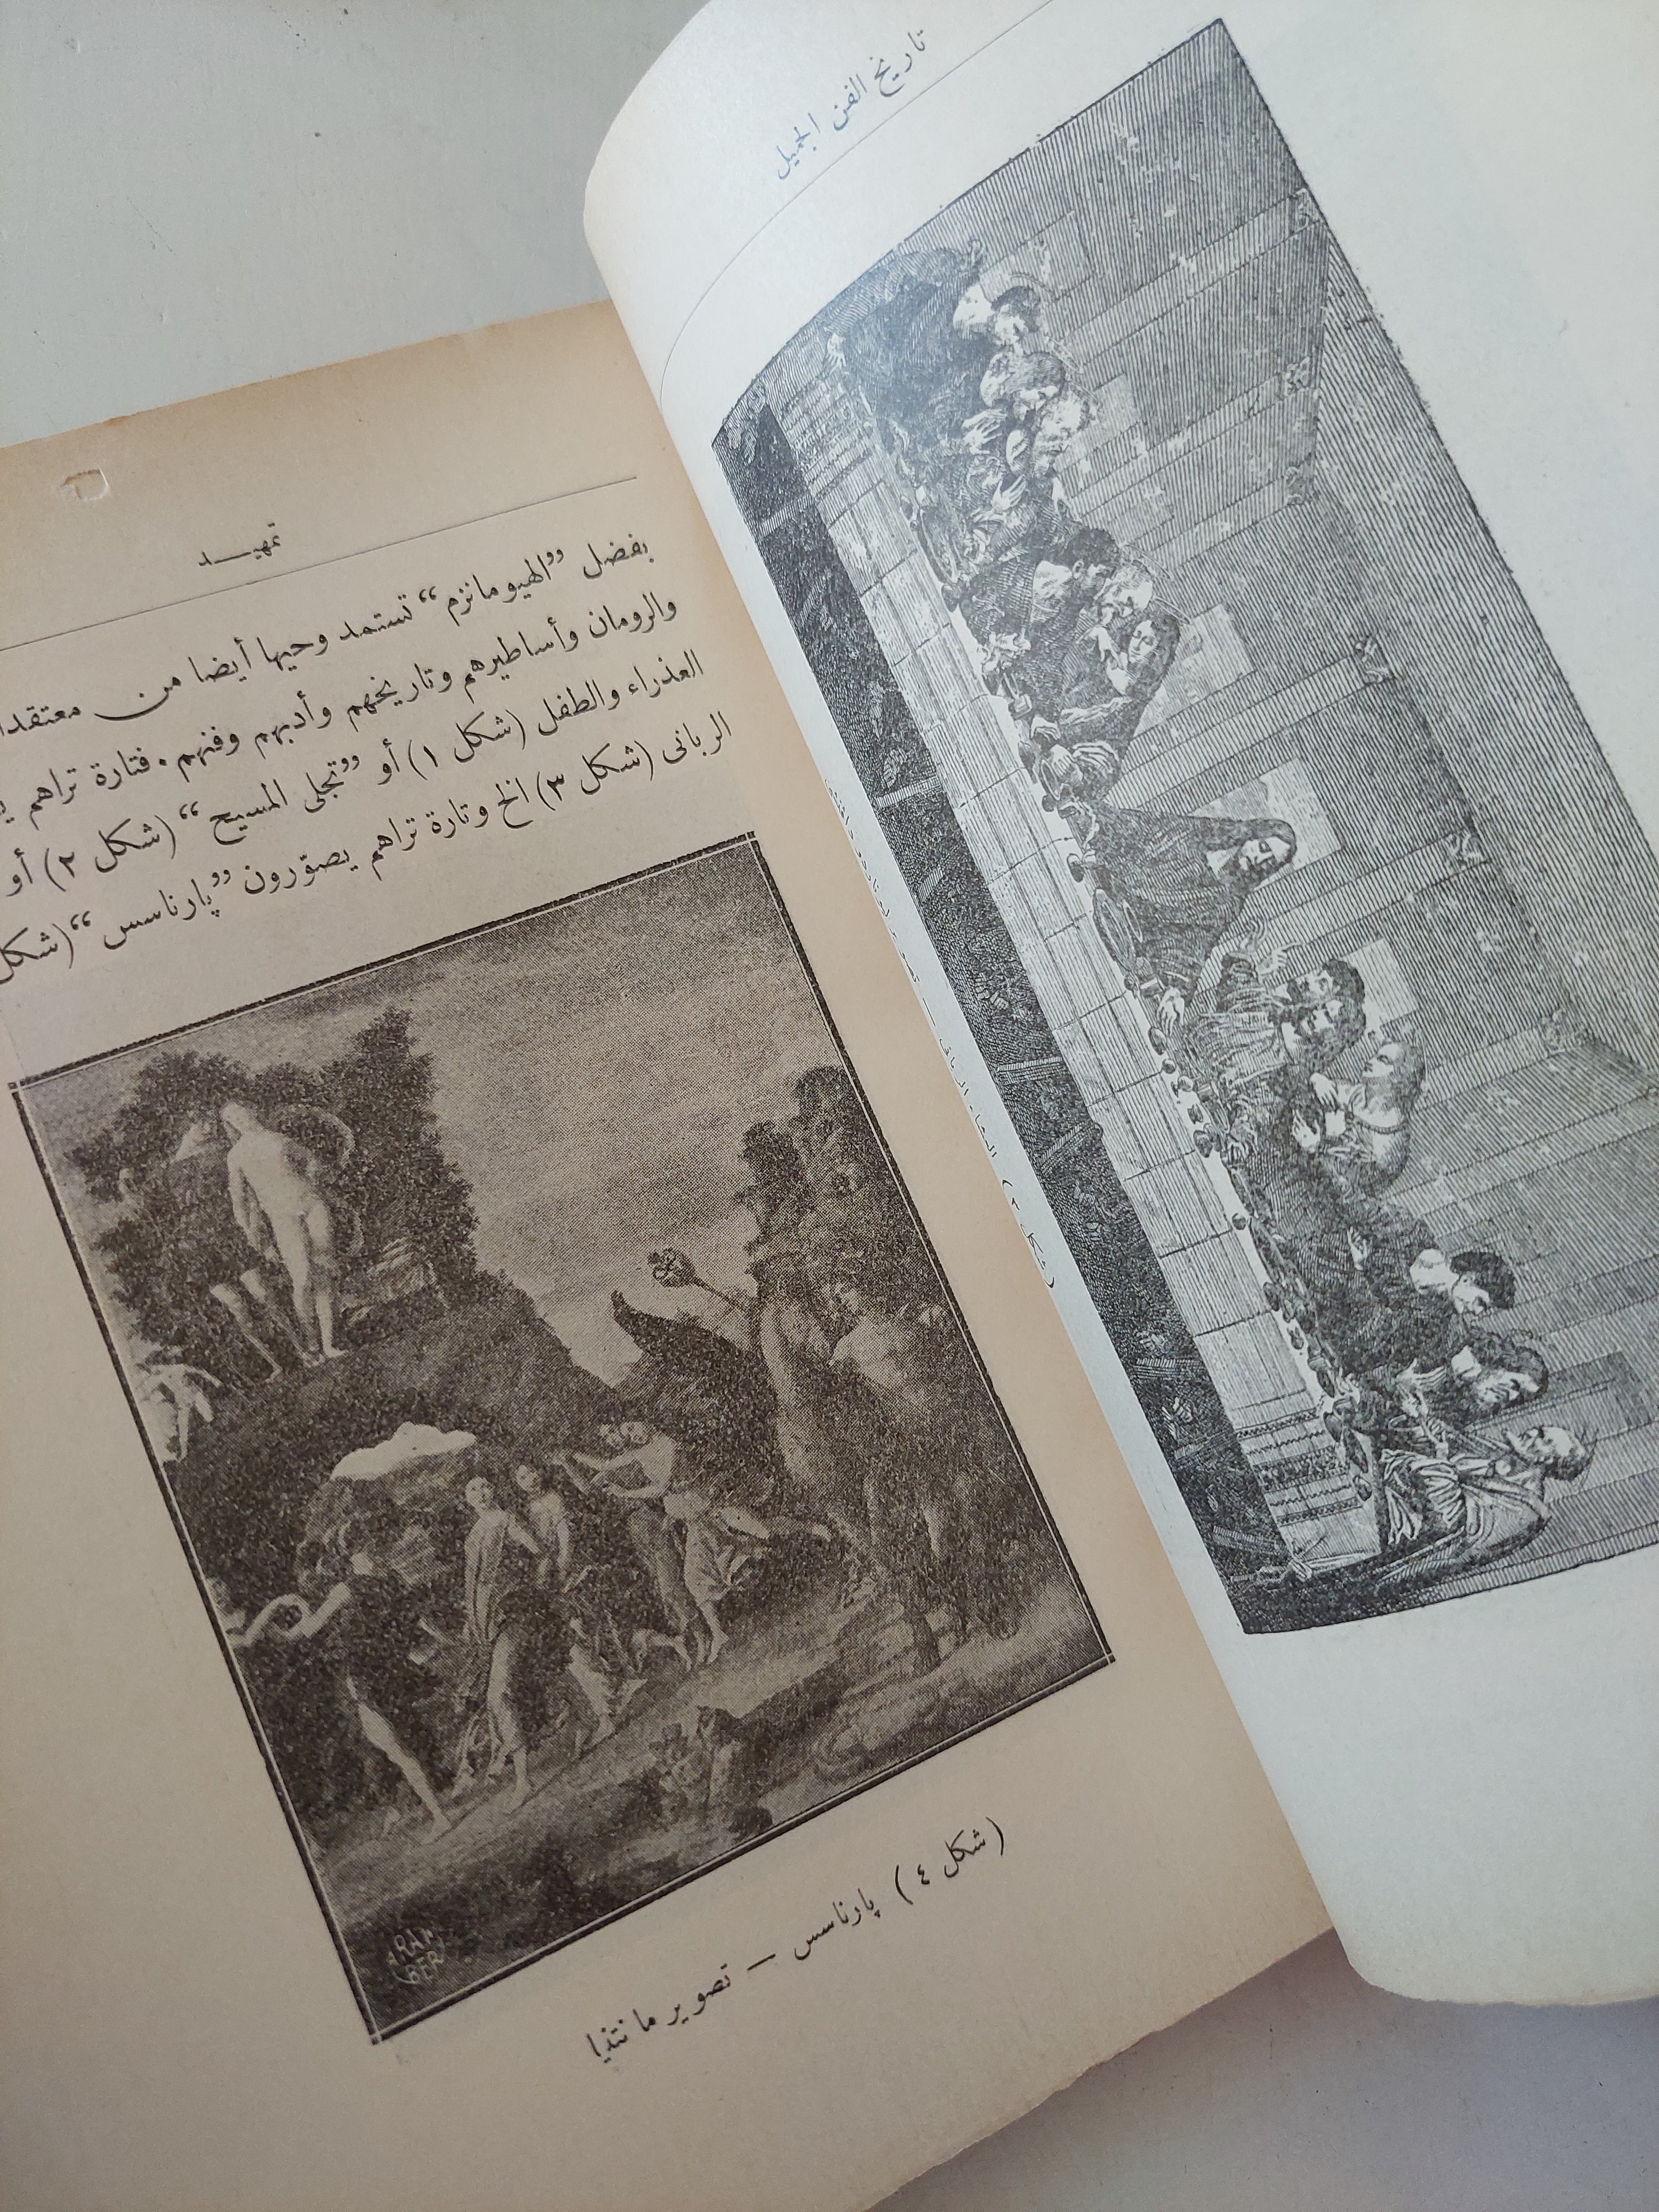 تاريخ الفن الجميل
(شكل ٣) العشاء الربانى — تصوير ليوناردو دافنشى
تمهيد
بفضل ”الهيومانزم“ تستمد وحيها أيضا من
والرومان وأساطيرهم وتاريخهم وأدبهم وفنهم. فتارة تراهم
العذراء والطفل (شكل ١) أو ”تجلى المسيح“ (شكل ٢) أو
الربانى (شكل ٣) الخ وتارة تراهم يصوّرون ”پارناسس“ (شكل
ARAM
BER
(شكل ٤) پارناسس — تصوير مانتنيا